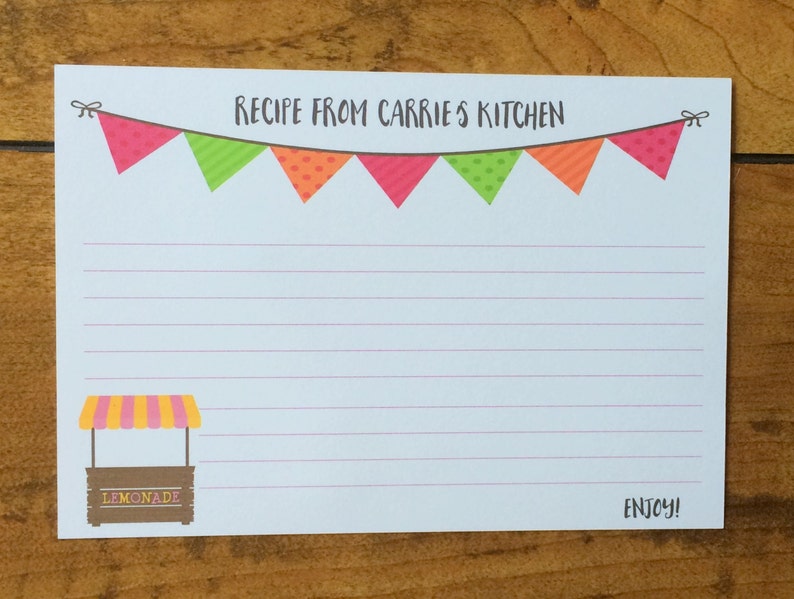 RECIPE FROM CARRIE'S KITCHEN
LEMONADE
ENJOY!